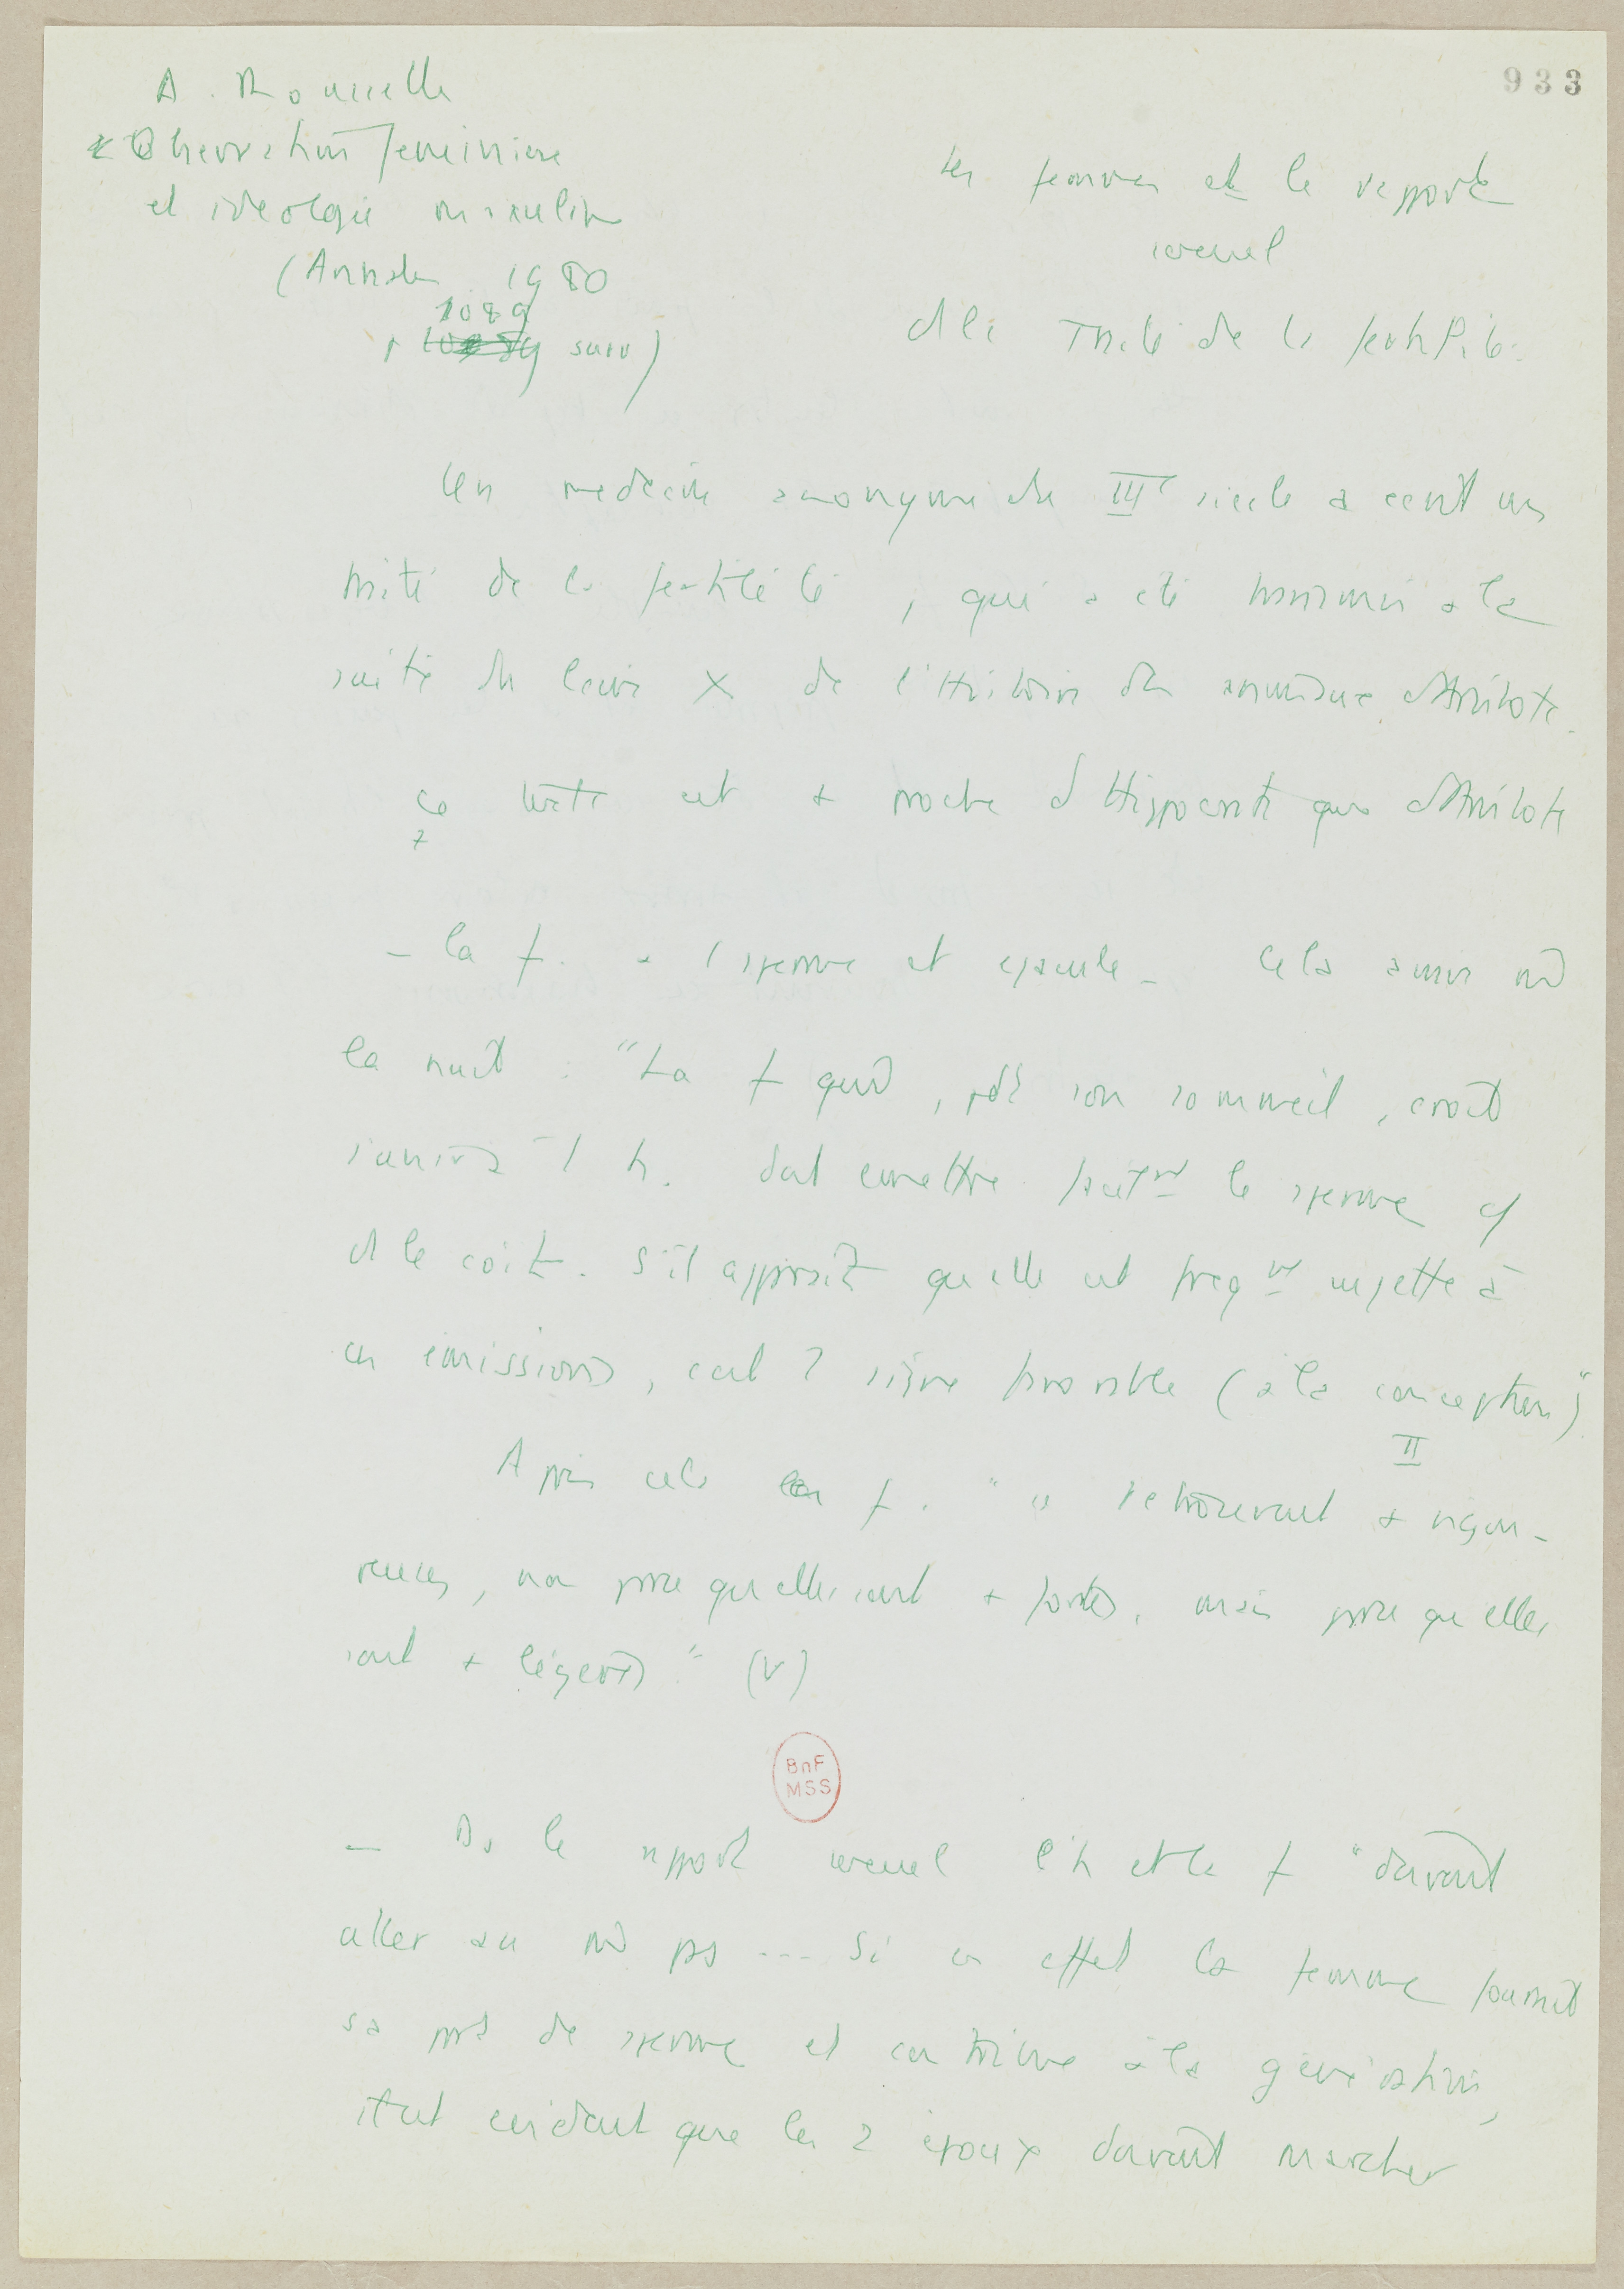 933
A. Rousselle
Observation féminine
et idéologie masculine
(Annales 1980
1089
p suiv)
Les femmes et le rapport
sexuel
ds le Traité de la fertilité.
Un médecin anonyme du IIIe siècle a écrit un
traité de la fertilité, qui a été transmis à la
suite du livre X de l'Histoire des animaux d'Aristote.
Ce texte est + proche d'Hippocrate que d'Aristote
- La f. a 1 sperme et éjacule - Cela arrive mê
la nuit : "La f qui, pdt son sommeil, croit
s'unir à 1 h. doit émettre facilt le sperme
ds le coït. S'il apparaît qu'elle est freqt sujette à
ces émissions, c'est 1 signe favorable (à la conception)"
II
Après cela les f. " se retrouvent + vigou-
reuses, non parce qu'elles sont + fortes, mais parce qu'elles
sont + légères." (V)
BnF
MSS
- Ds le rapport sexuel l'h et la f "doivent
aller au mê pas --- Si en effet la femme fournit
sa part de sperme et contribue à la génération,
il est évident que les 2 époux doivent marcher